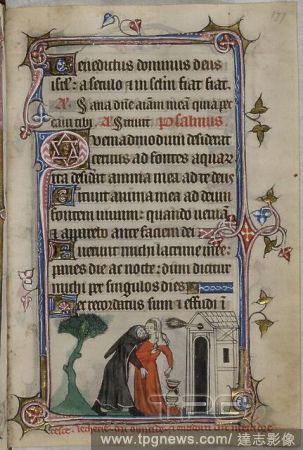 Benedictus dominus deus
isrł: a seculo et in sclm fiat fiat.
A. Sana dñe aiam meā quia pec
caui tibi. A. Sitiuit Psalmus
Quemadmodum desiderat
ceruus ad fontes aquaꝝ
ita desidat anima mea ad te deus
Sitiuit anima mea ad deum
fontem uiuum: quando ueniā
& apparebo ante faciem dei
Fuerunt michi lacrime mee
panes die ac nocte: dum dicitur
michi per singulos dies
Hec recordatus sum & effudi ī
TPG
www.tpgnews.com/ 達志影像